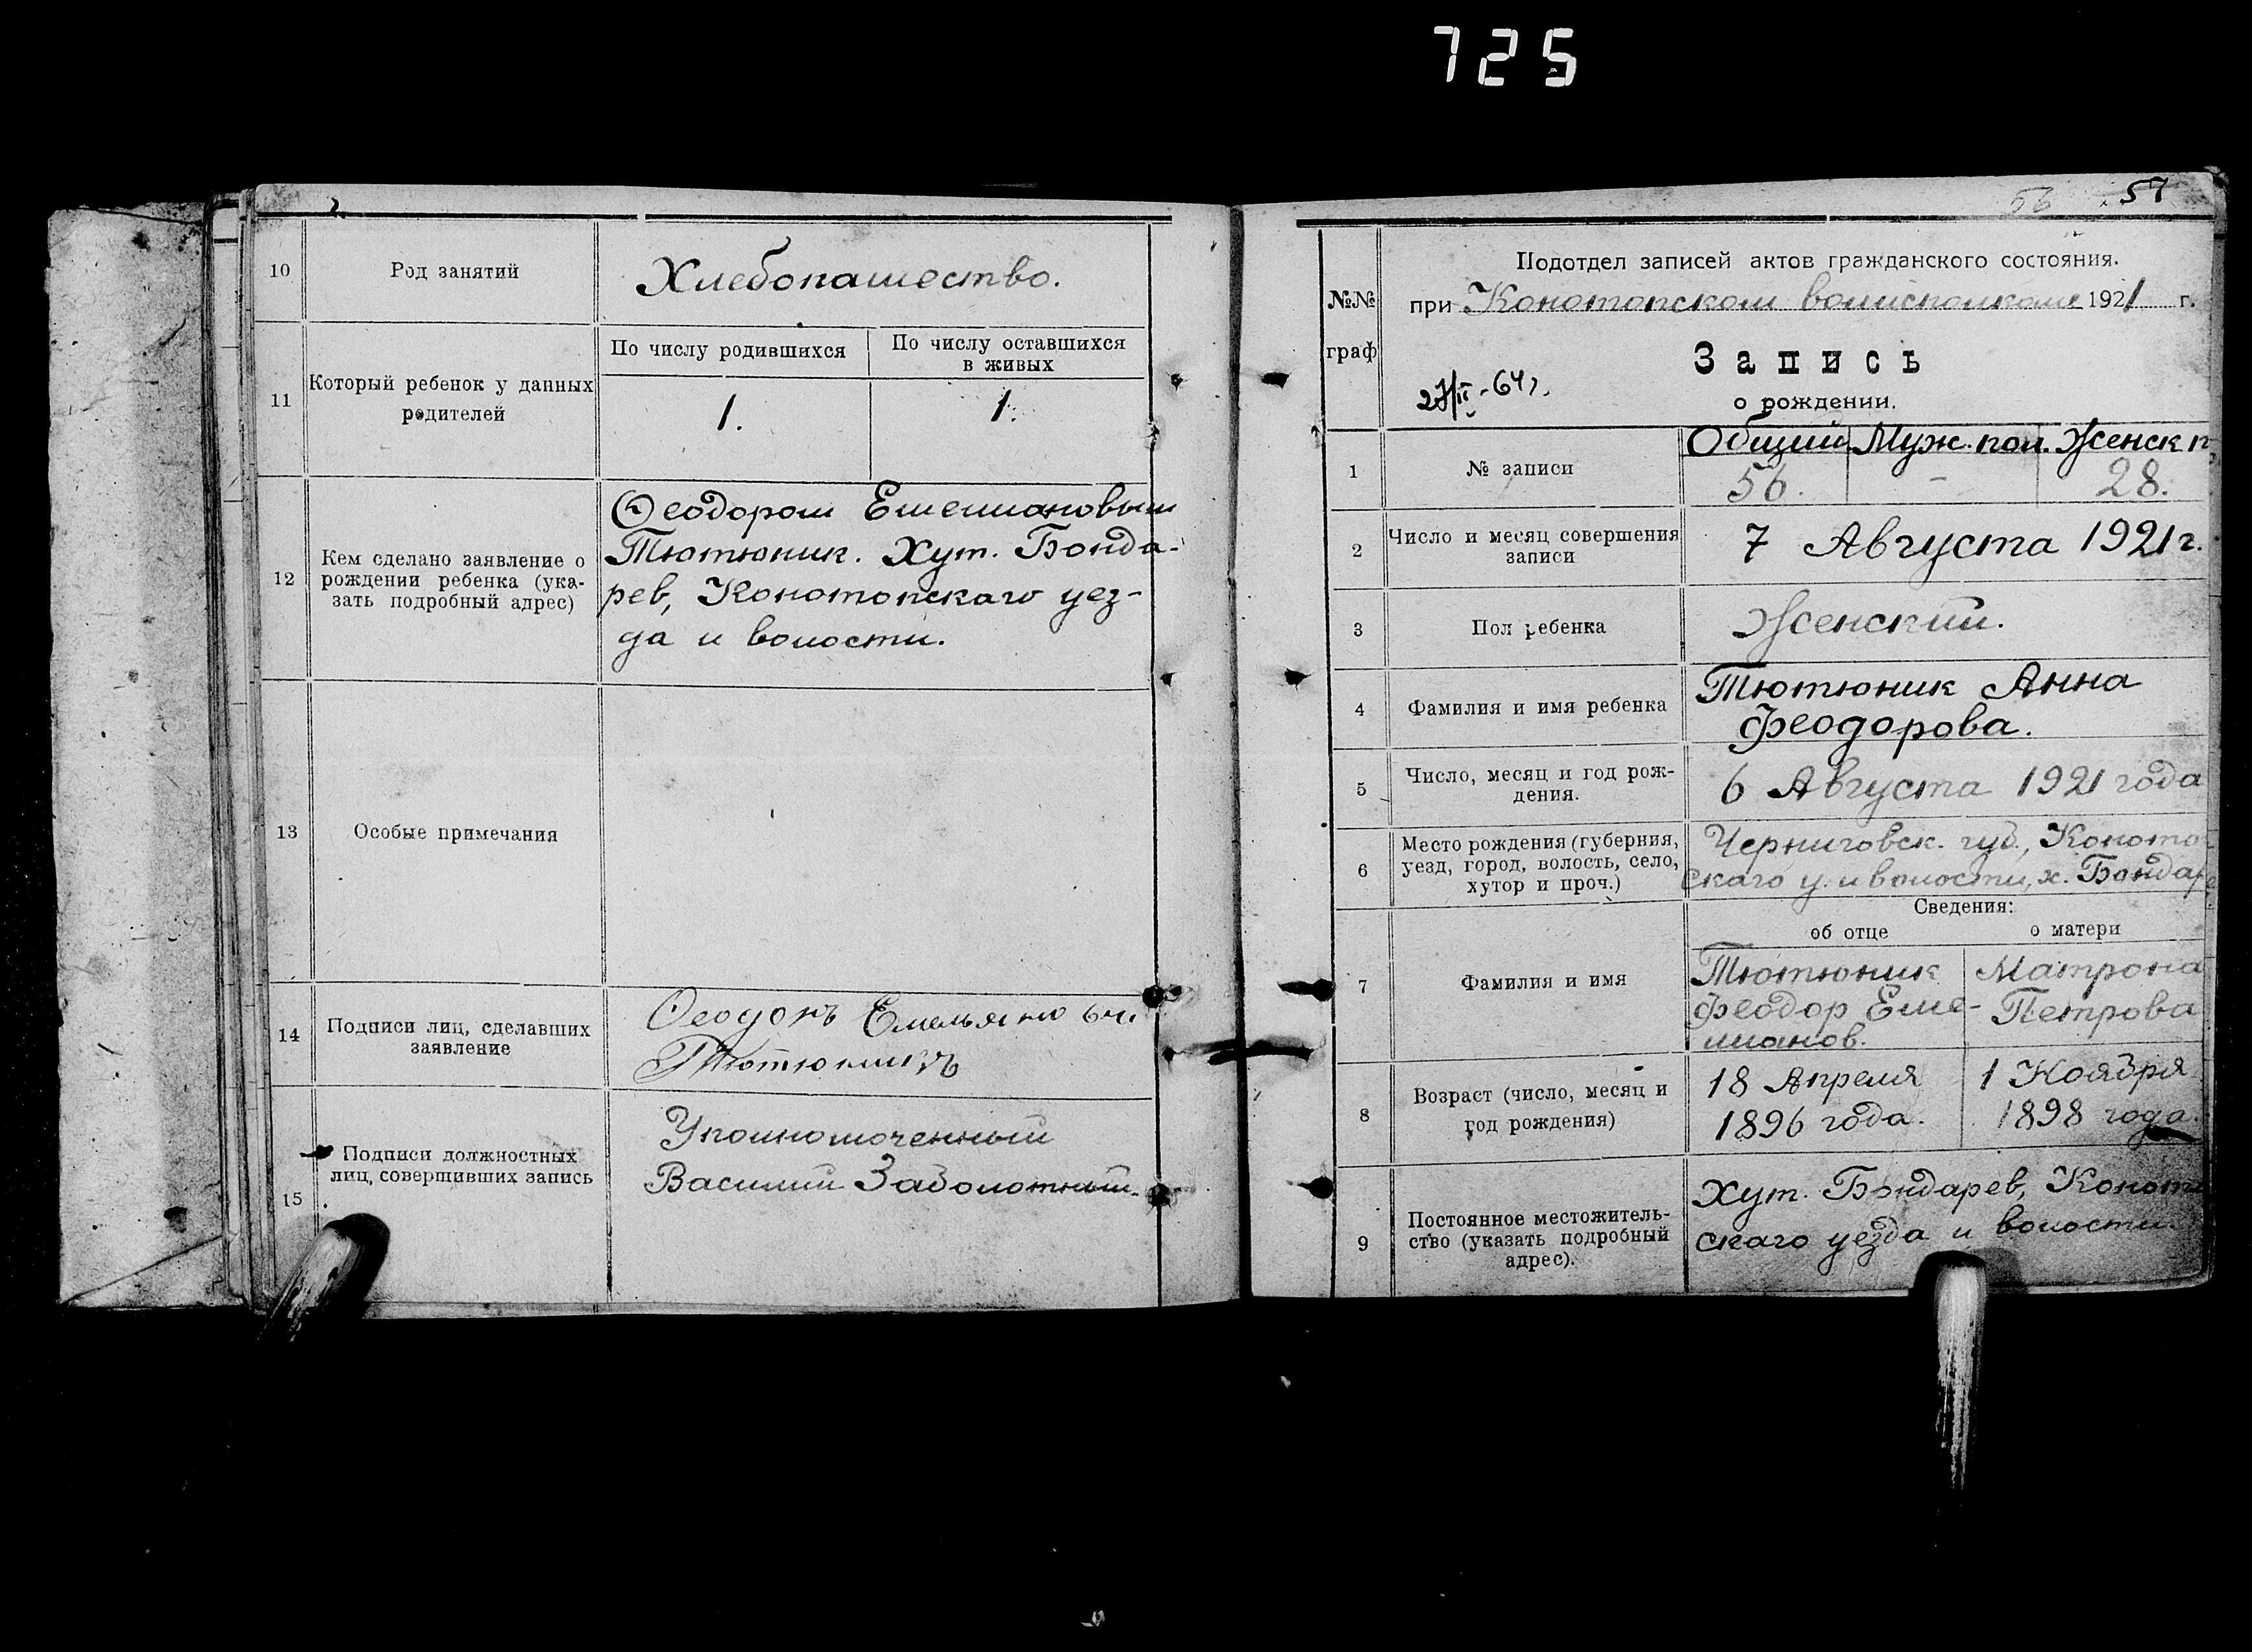 725
10
Род занятий
Хлебопашество.
11
Который ребенок у данных
родителей
По числу родившихся
По числу оставшихся
в живых
1.
1.
12
Кем сделано заявление о
рождении ребенка (ука-
зать подробный адрес)
Ѳеодором Емелиановым
Тютюник. Хут. Бонда-
рев, Конотопскаго уез-
да и волости.
13
Особые примечания
14
Подписи лиц, сделавших
заявление
Ѳеодоръ Емельянович
Тютюникъ
15
Подписи должностных
лиц, совершивших запись
Уполномоченный
Василий Заболотный.
56 57
№№
граф
Подотдел записей актов гражданского состояния.
при Конотопском волисполкоме 1921 г.
Запись
о рождении.
27/II-64 г.
1
№ записи
Общий Муж. пол. Женск п
56. - 28.
2
Число и месяц совершения
записи
7 Августа 1921 г.
3
Пол ребенка
Женский.
4
Фамилия и имя ребенка
Тютюник Анна
Феодорова.
5
Число, месяц и год рож-
дения.
6 Августа 1921 года
6
Место рождения (губерния,
уезд, город, волость, село,
хутор и проч.)
Черниговск. губ., Коното
скаго у. и волости, х. Бондаре
Сведения:
об отце
о матери
7
Фамилия и имя
Тютюник
Феодор Еме-
лианов.
Матрона
Петрова
8
Возраст (число, месяц и
год рождения)
18 Апреля
1896 года.
1 Ноября
1898 года.
9
Постоянное местожитель-
ство (указать подробный
адрес).
Хут. Бондарев, Коното
скаго уезда и волости.